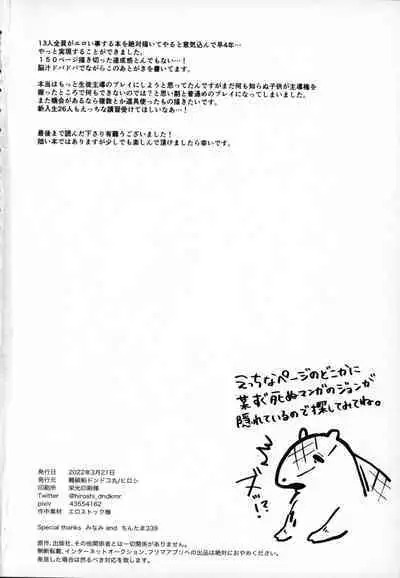 13人全員がエロい事する本を絶対描いてやると意気込んで早4年…
やっと実現することができました。
150ページ描き切った達成感とんでもない…!
脳汁ドバドバでながらこのあとがきを書いてます。
本当はもっと生徒主導のプレイにしようと思ってたんですがまだ何も知らぬ子供が主導権を
握ったところで何もできないのでは?と思い割と普通めのプレイになってしまいました。
また機会があるなら複数とか道具使ったもの描きたいです。
新入生26人もえっちな講習受けてほしいなぁ…!
最後まで読んだ下さり有難うございました!
拙い本ではありますが少しでも楽しんで頂けましたら幸いです。
えっちなページのどこかに
某すぐ死ぬマンガのジョンが
隠れているので探してみてね。
発行日 2022年3月21日
発行元 難破船ドンドコ丸/ヒロシ
印刷所 栄光印刷様
Twitter @hiroshi_dndkmr
pixiv 43554162
作中素材 エロストック様
Special thanks みなみ and ちんたま339
原作、出版社、その他関係者とは一切関係がありません。
無断転載、インターネットオークション、フリマアプリへの出品は絶対におやめください。
発見した場合は然るべき対応を致します。